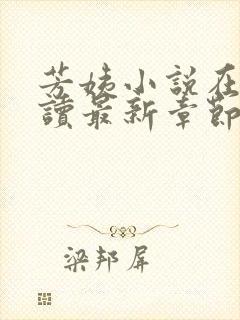 芳姨小說在
讀最新章節
梁邦屏